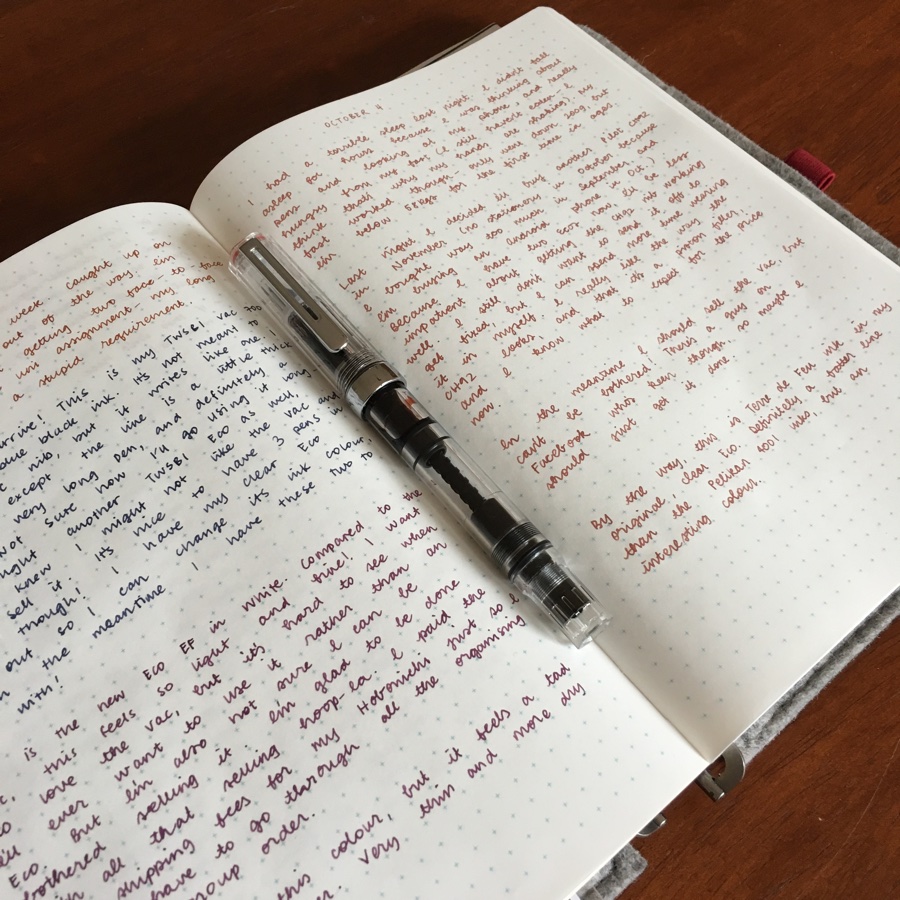 week caught up on
out of the way. I'm
getting two face-to-face
uni assignment - my
a stupid requirement.
This is my TWSBI Vac 700
black ink. It's not meant to
nib, but it writes like one
except the line is a little thick
very long pen, and definitely a
Not sure how I'll go using it long
another TWSBI Eco as well,
knew I might not like the Vac and
sell it. It's nice to have 3 pens in
though! I have my clear Eco
out, so I can change its ink colour,
in the meantime I have these two to
with!
is the new Eco EF in white. Compared to the
this feels so light and fine! I want
love the Vac, but it's hard to see when
ever want to use it rather than an
Eco. But I'm also not sure I can be
bothered selling it. I'm glad to be done
with all that selling hoop-la. I paid the
shipping fees for my Hobonichi just so I
have to go through all the organising
group order.
this colour, but it feels a tad
very thin and more dry
OCTOBER 4
I had a terrible sleep last night. I didn't fall
asleep for hours because I was thinking about
pens and looking at my phone and really
hungry from my fast (I still haven't eaten - I
think that's why my hands are shaking). My
fast worked though - only now down 200g but
I'm below 58kgs for the first time in ages!
Last night I decided I'll buy another Pilot
in November (no stationery in October because
I'm buying too much in September and
because I bought an Android phone in Oct.)
I have two because now I'll be less
important about getting the CH92 working
well. I still don't want to send it off to
get it fixed, but I can spend more time
in myself. I really like the way the
CH92 looks, and that it's a piston filler,
and I know what to expect for the price
now.
In the meantime I should sell the Vac, but
can't be bothered! There's a guy on
Facebook who's keen though, so maybe I
should just get it done.
By the way, this is Terre de Feu ink in my
original, clear Eco. Definitely a better line
than the Pelikan 4001 inks, but an
interesting colour.